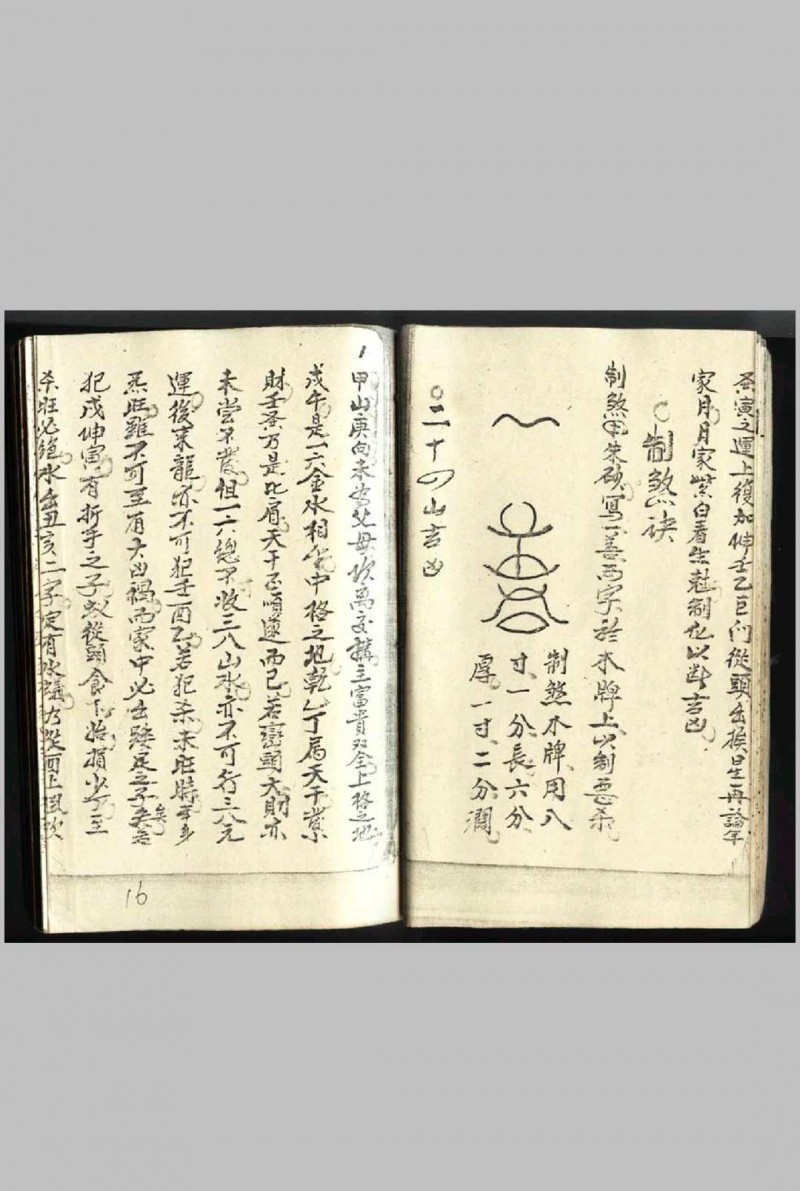 運上復加坤壬乙巨門從頭出挨星再論年
家月月家紫白看生尅制化以斷吉凶
制煞訣
制煞用朱砂寫一善两字於木牌上以制惡煞
制煞木牌用八
寸一分長六分
厚一寸二分濶
二十四山吉凶
1
甲山庚向未為父母坎离交媾主富貴双全上格之地
戌午是一六金水相中格之地乾丁属天干發小
財壬乃是比肩天干不順遂而已若巒頭大財亦
未嘗不發但一六總不收三八山水亦不可行三八元
運後来龍亦不可犯壬酉乙若犯杀未旺時年身
杀旺雖不可至有大凶禍而家中必出跛足之子
犯戌坤寅有折手之子蚁從頭食下始損少丁至
杀旺必絕水出丑亥二字定有水蟻從面上
16